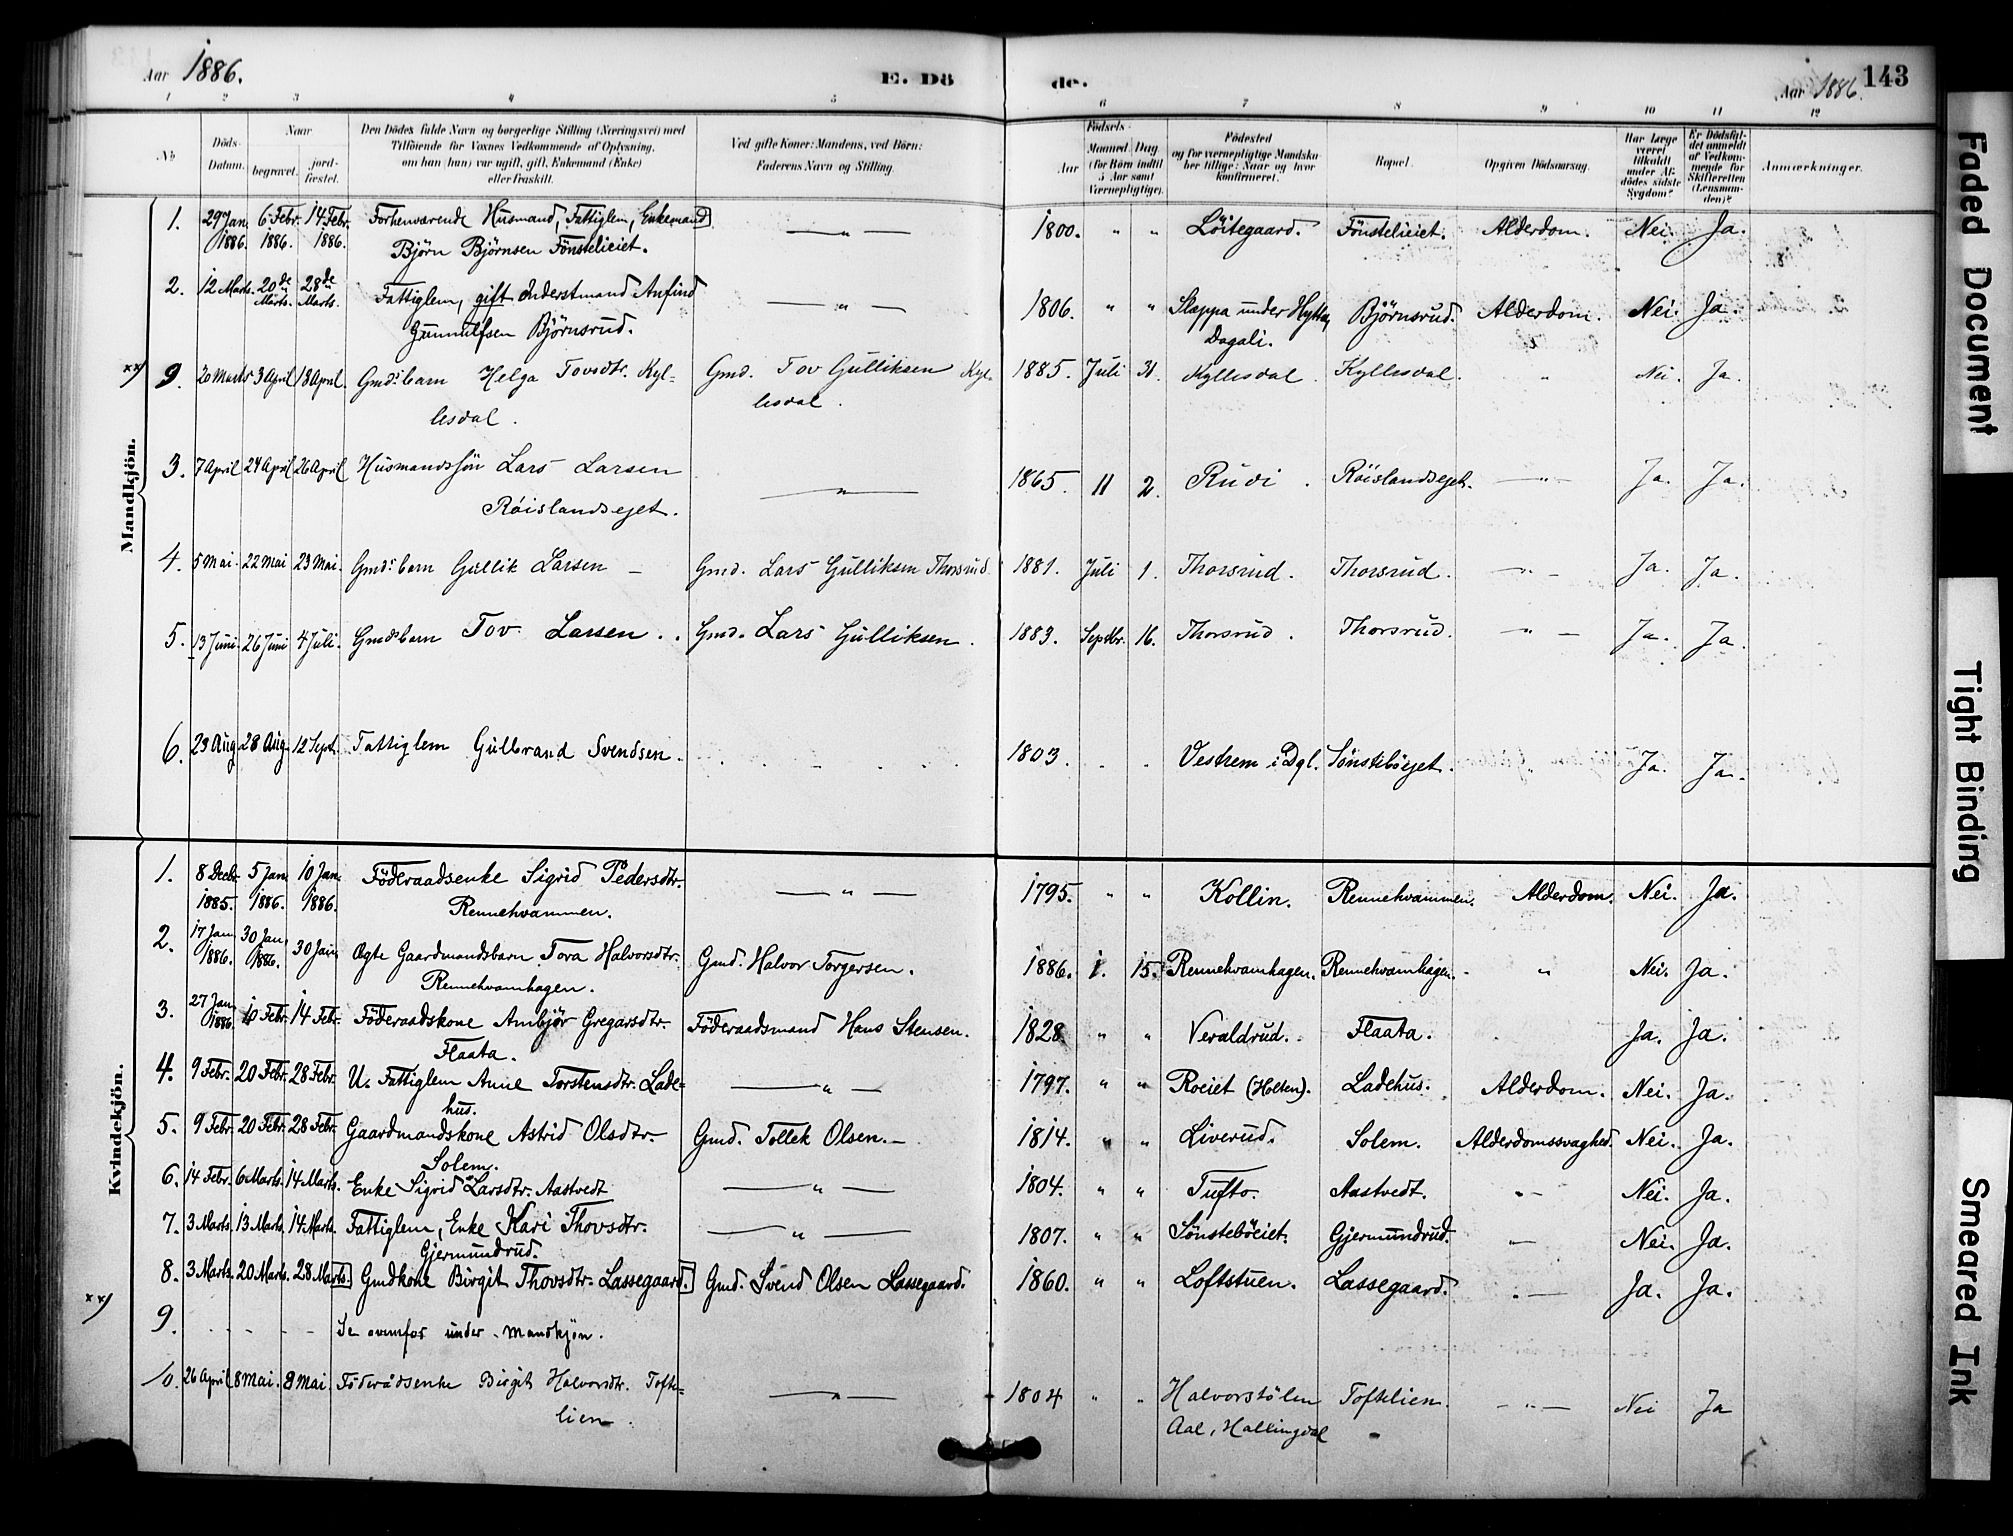 Aar 1886. E. Dö de. Aar 1886. 143
1 2 3 4 5 6 7 8 9 10 11 12
No. Döds-Datum. Naar begravet. jordfæstet. Den Dödes fulde Navn og borgerlige Stilling (Næringsvei) med Tilföiende for Voxnes Vedkommende af Oplysning, om han (hun) var ugift, gift, Enkemand (Enke) eller fraskilt. Ved gifte Koner: Mandens, ved Börn: Faderens Navn og Stilling. Födsels- Aar Maaned. Dag (for Börn indtil 5 Aar samt Værnepligtige). Födested og for værnepligtige Mandskaber tillige: Naar og hvor konfirmeret. Bopæl. Opgiven Dödsaarsag. Har Læge været tilkaldt under Afdödes sidste Sygdom? Er Dödsfaldet anmeldt af Vedkommende for Skifteretten (Lensmanden)? Anmærkninger.
Mandkjön.
1. 29 Jan. 6 Febr. 14 Febr. Forhenværende Husmand, Fattiglem, Enkemand — " — 1800. " " Löitegaard. Fönstelieiet. Alderdom. Nei. Ja.
1886. 1886. 1886. Björn Björnsen Fönstelieiet.
2. 12 Marts. 20de Marts. 28de Marts. Fattiglem, gift Inderstmand Anfind — " — 1806. " " Slappa under Hytta, Björnsrud. Alderdom. Nei. Ja.
Gunnulfsen Björnsrud. Dagali.
xx) 9. 20 Marts 3 April 18 April. Gmds barn Helga Tovsdtr. Kyl= Gmd. Tov Gulliksen Kyl- 1885. Juli 31. Kyllesdal. Kyllesdal. " Nei. Ja.
lesdal. lesdal.
3. 7 April 24 April 26 April Husmandssön Lars Larsen — " — 1865. 11 2. Rudi. Röislandsejet. — " — Ja. Ja.
Röislandsejet.
4. 5 Mai. 22 Mai 23 Mai. Gmds barn Gullik Larsen — Gmd. Lars Gulliksen Thorsrud. 1881. Juli 1. Thorsrud. Thorsrud. — " — Ja. Ja.
5. 13 Juni. 26 Juni 4 Juli. Gmdsbarn Tov Larsen. Gmd. Lars Gulliksen. 1883. Septbr. 16. Thorsrud. Thorsrud. — " — Ja. Ja.
6. 23 Aug 28 Aug. 12 Sept. Fattiglem Gulbrand Svendsen. 1803. Vestrem i Dgl. Sönsteböejet. " Ja. Ja.
Kvindekjön.
1. 8 Decbr. 5 Jan. 10 Jan. Föderaadsenke Sigrid Pedersdtr. — " — 1795. " " Kollin. Rennehvammen. Alderdom. Nei. Ja.
1885. 1886. 1886. Rennehvammen.
2. 17 Jan. 1886. 30 Jan. 1886. 30 Jan. Ægte Gaardmandsbarn Tora Halvorsdtr. Gmd. Halvor Torgersen. 1886. 1. 15. Rennehvamhagen. Rennehvamhagen. " Nei. Ja.
Rennehvamhagen.
3. 27 Jan. 1886. 10 Febr. 14 Febr. Föderaadskone Ambjör Gregarsdtr. Föderaadsmand Hans Stensen. 1828. " " Veraldrud. Flaata. Ja. Ja.
Flaata.
4. 9 Febr. 20 Febr. 28 Febr. U. Fattiglem Anne Torstensdtr. Lade= — " — 1797. " " Roeiet (Holten). Ladehus. Alderdom. Nei. Ja.
hus.
5. 9 Febr. 20 Febr. 28 Febr. Gaardmandskone Astrid Olsdtr. Gmd. Tollek Olsen. — 1814. " " Liverud. Solem. Alderdomssvaghed. Nei. Ja.
Solem.
6. 14 Febr. 6 Marts. 14 Marts. Enke Sigrid Larsdtr. Aastvedt — " — 1804. " " Tufto. Aastvedt. " — Nei. Ja.
7. 3 Marts. 13 Marts. 14 Marts. Fattiglem, Enke Kari Thovsdtr. — " — 1807. " " Sönsteböeiet. Gjermundrud. — Nei. Ja.
Gjermundrud.
8. 3 Marts. 20 Marts. 28 Marts. Gmdkone Birgit Thovsdtr. Lassegaard. Gmd. Svend Olsen Lassegaard. 1860. " " Loftstuen. Lassegaard. " — Ja. Ja.
xx) 9. - - - - Se ovenfor under Mandkjön.
10. 26 April 8 Mai. 8 Mai. Föderådsenke Birgit Halvorsdtr. Tofte= — " — 1804 " " Halvorstölen Toftelien. — " — Nei Ja
lien. Aal, Hallingdal
Faded Document
Tight Binding
Smeared Ink